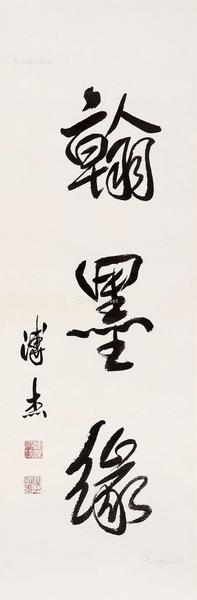 翰墨缘
溥杰